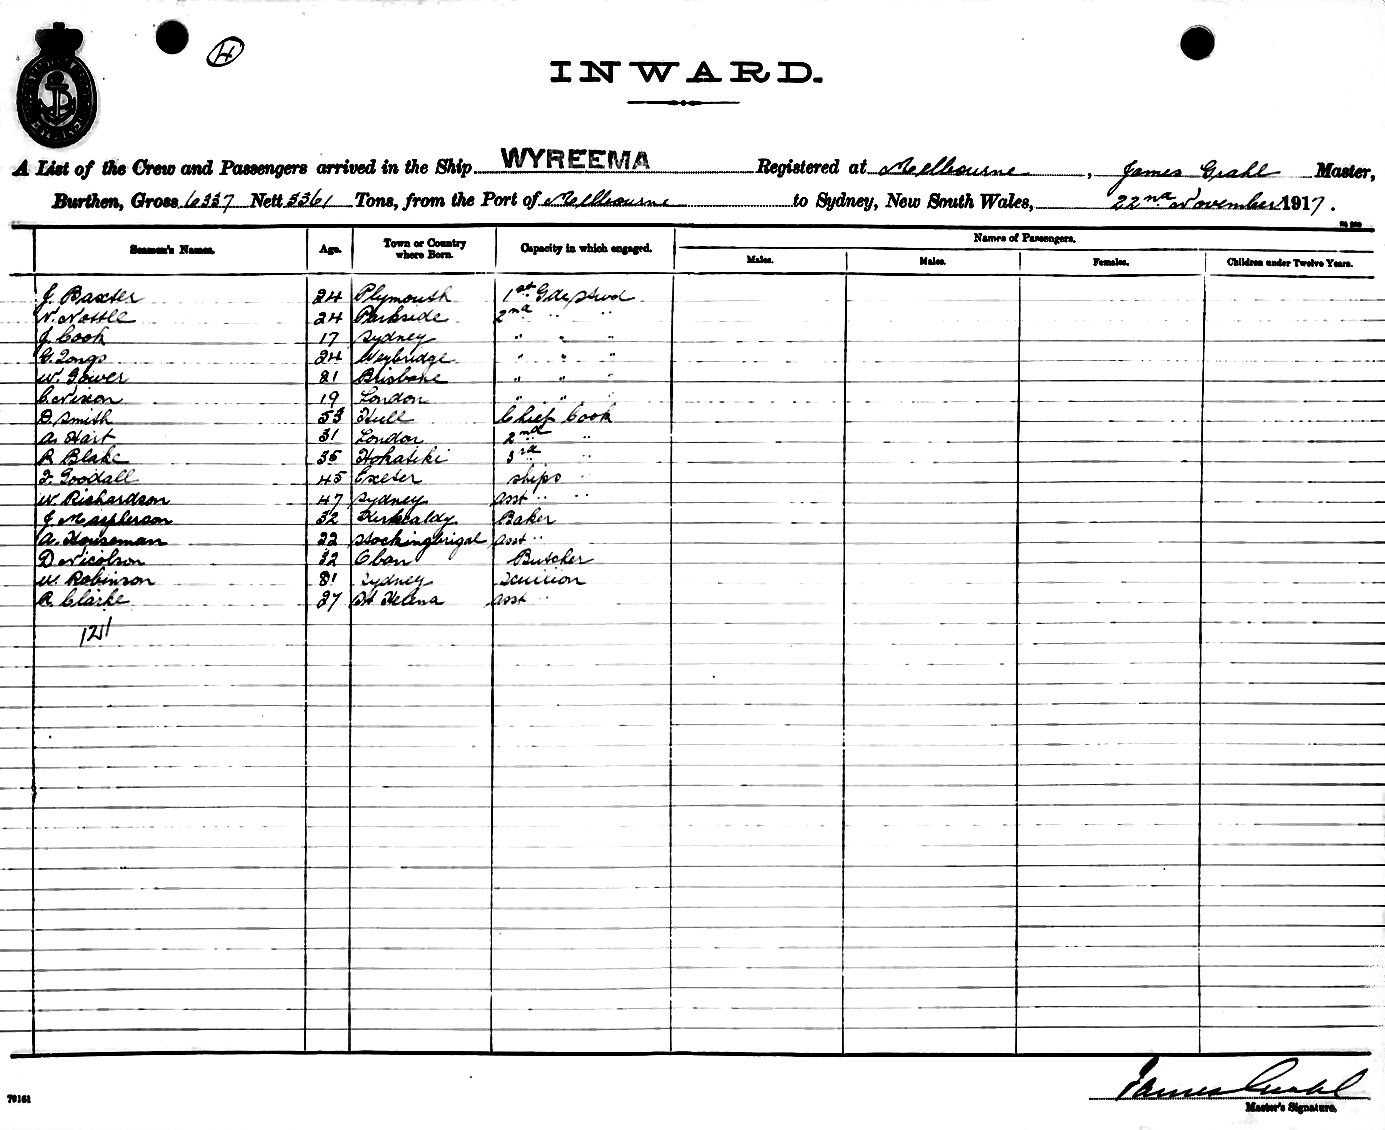 4
INWARD.
A List of the Crew and Passengers arrived in the Ship WYREEMA Registered at Melbourne, James Grahl Master,
Burthen, Gross 6337 Nett 3361 Tons, from the Port of Melbourne to Sydney, New South Wales, 22nd November 1917.
Names of Passengers.
Seamen's Names. Age. Town or Country where Born. Capacity in which engaged. Males. Males. Females. Children under Twelve Years.
J. Baxter 24 Plymouth 1st Gde Stwd
N. Nottle 24 Parkside 2nd " "
J. Cook 17 Sydney " " "
G. Longs 24 Weybridge " " "
W. Gower 21 Brisbane " " "
C. Nixon 19 London " " "
D. Smith 53 Hull Chief Cook
A. Hart 31 London 2nd "
R. Blake 35 Hokatiki 3rd "
F. Goodall 45 Exeter Ships "
W. Richardson 47 Sydney Asst " "
J. Macpherson 32 Kirkcaldy Baker
A. Houseman 22 Stockingbrigal Asst "
D. Nicolson 32 Oban Butcher
W. Robinson 31 Sydney Scullion
R. Clarke 27 St Helena Asst "
121
James Grahl
Master's Signature.
79161